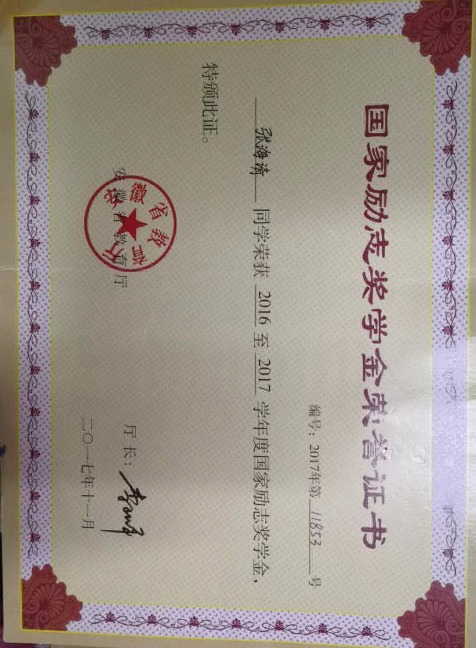 国家励志奖学金荣誉证书
编号：2017年第 11853 号
张海清 同学荣获 2016 至 2017 学年度国家励志奖学金，
特颁此证。
安徽省教育厅
安徽省教育厅
厅长：
二〇一七年十一月